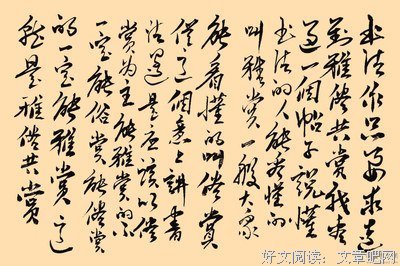 书法作品要求达
到雅俗共赏我查
过一個帖子说懂
书法的人能看懂的
叫雅赏一般大众
能看懂的叫俗赏
从这個意上讲書
法还是应该以俗
赏为主能雅赏的不
一定能俗赏能俗赏
的一定能雅赏这
就是雅俗共赏
好文阅读：文章吧网